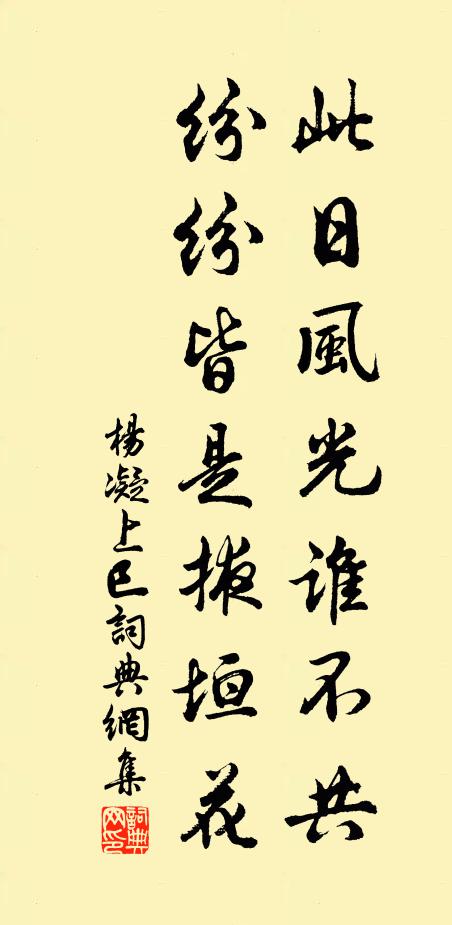 此日風光誰不共
紛紛皆是掖垣花
楊凝上巳詞典網集
詞典網印